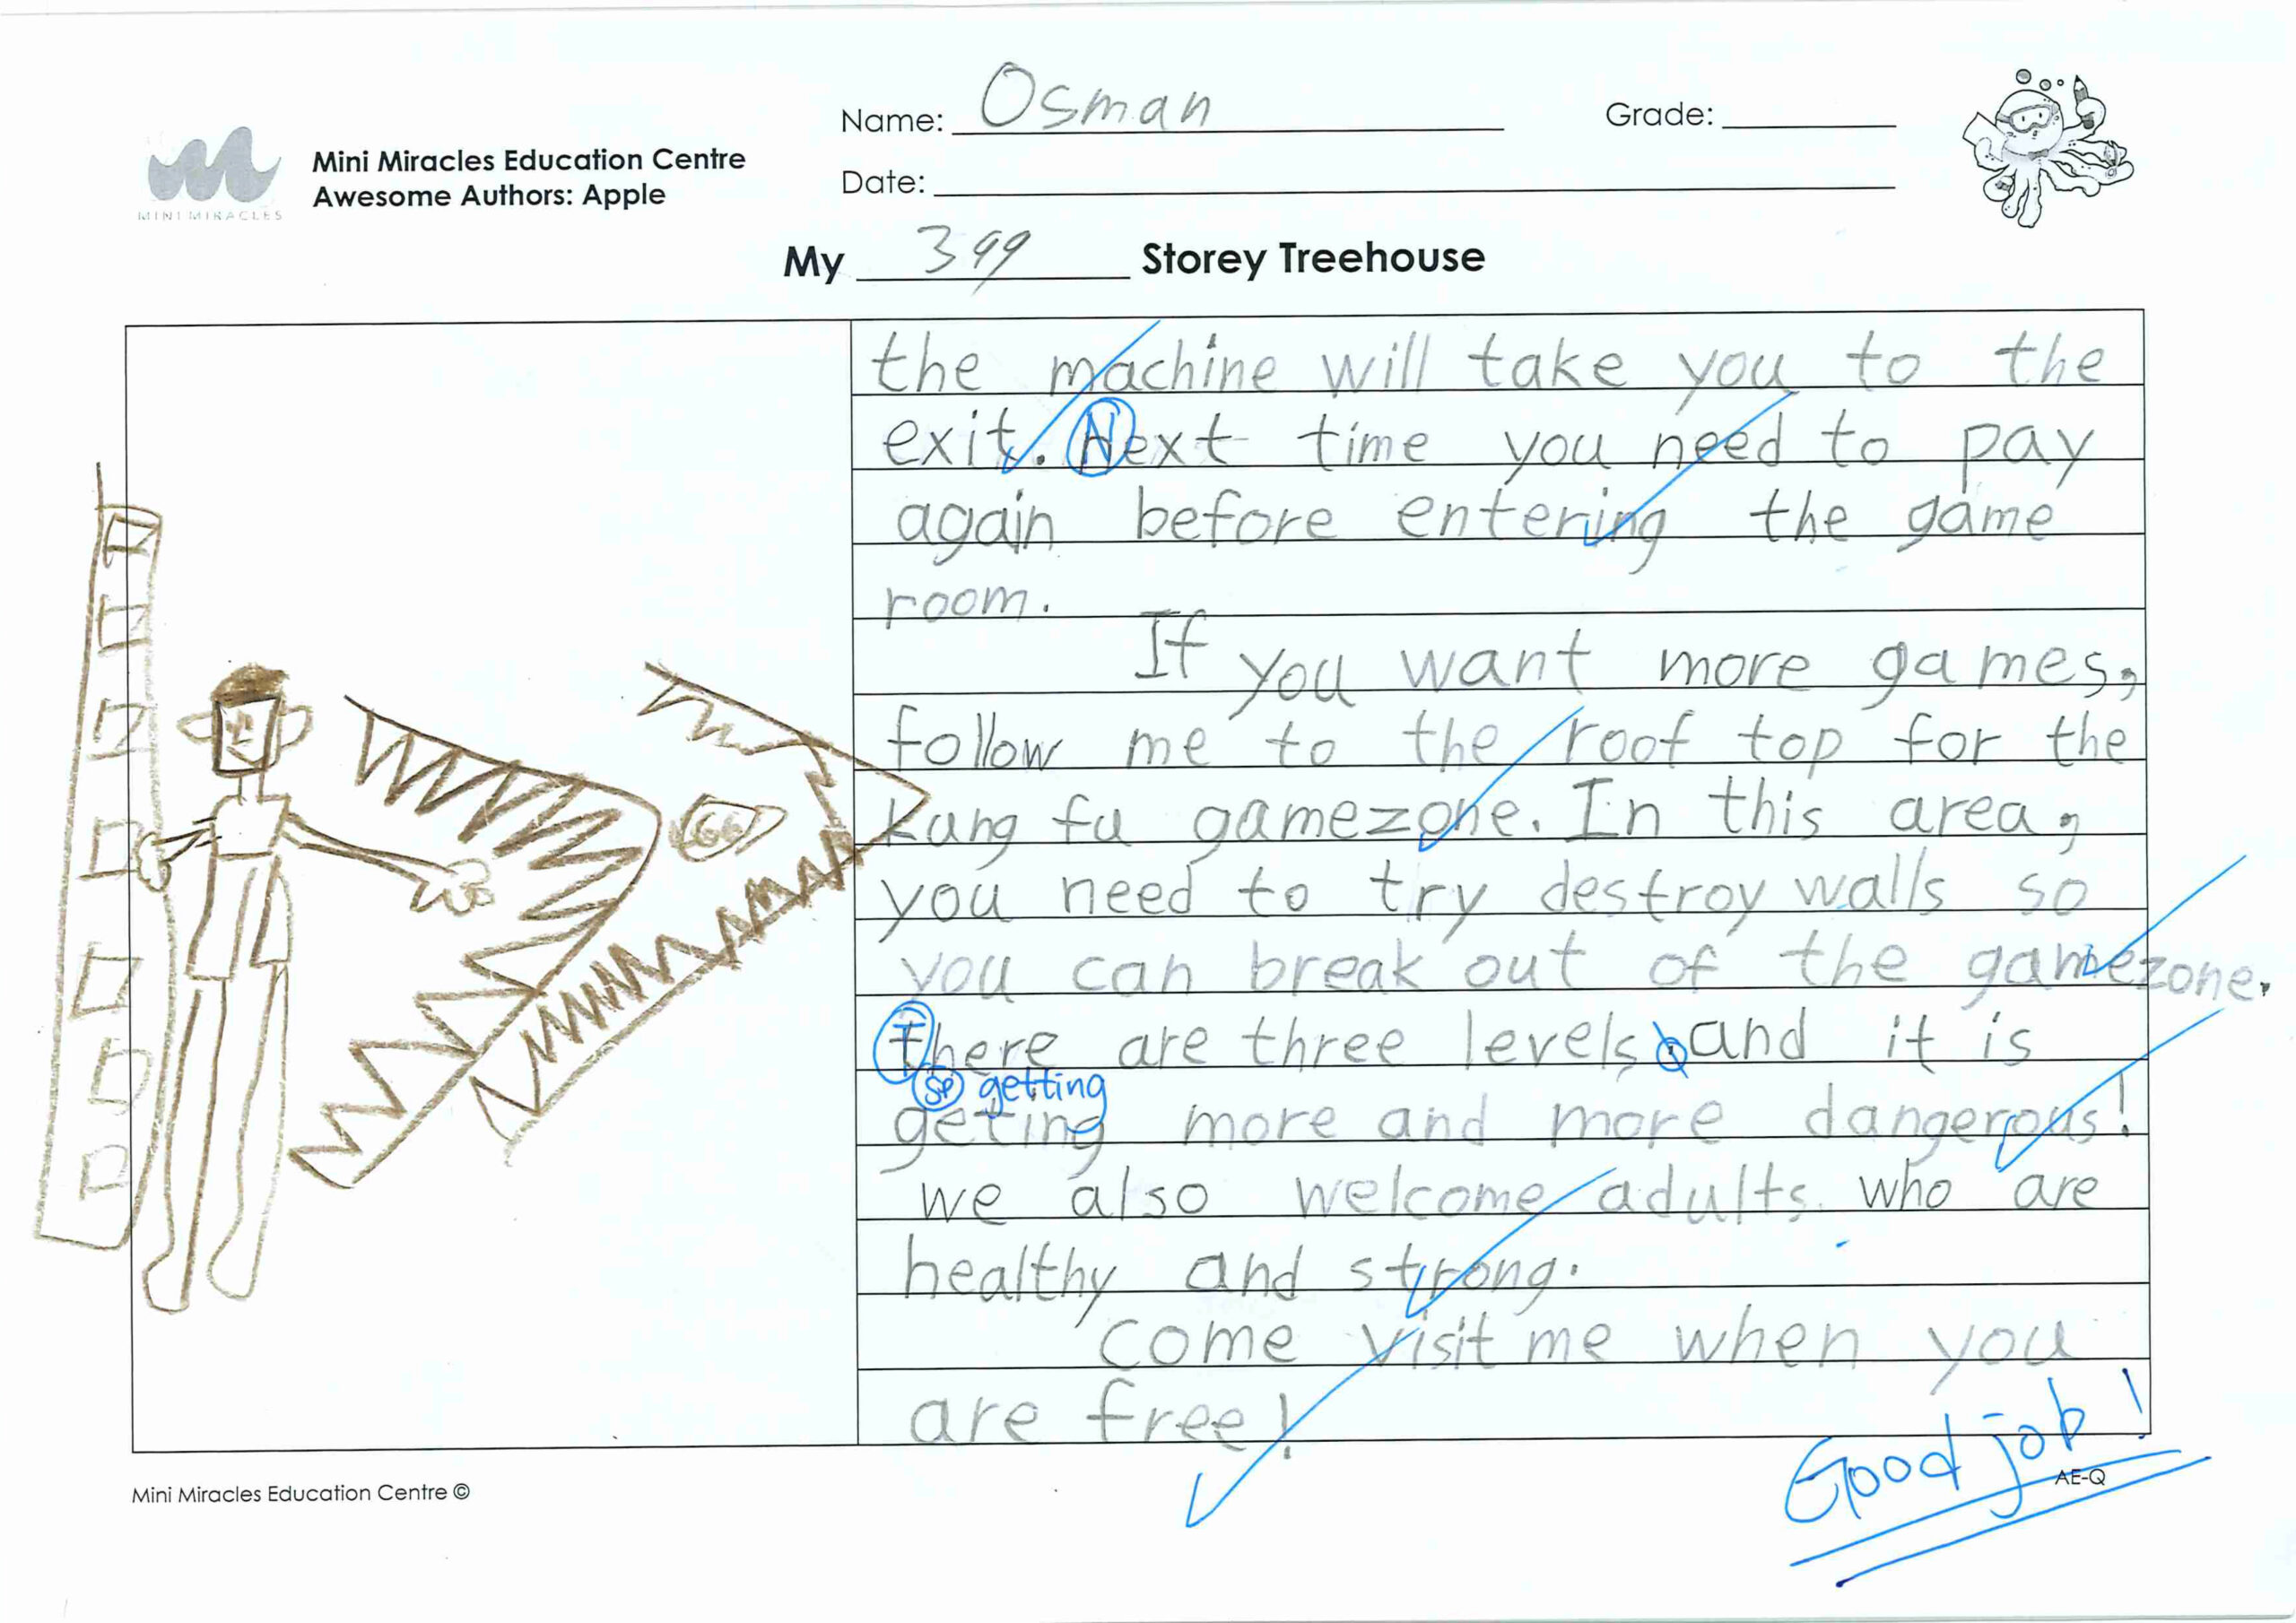 MINI MIRACLES
Mini Miracles Education Centre
Awesome Authors: Apple
Name: Osman
Grade:
Date:
My 399 Storey Treehouse
the machine will take you to the
exit. Next time you need to pay
again before entering the game
room.
If you want more games,
follow me to the roof top for the
kung fu gamezone. In this area,
you need to try destroy walls so
you can break out of the gamezone.
There are three levels, and it is
sp getting
geting more and more dangerous!
we also welcome adults who are
healthy and strong.
come visit me when you
are free!
Good job!
Mini Miracles Education Centre ©
AE-Q